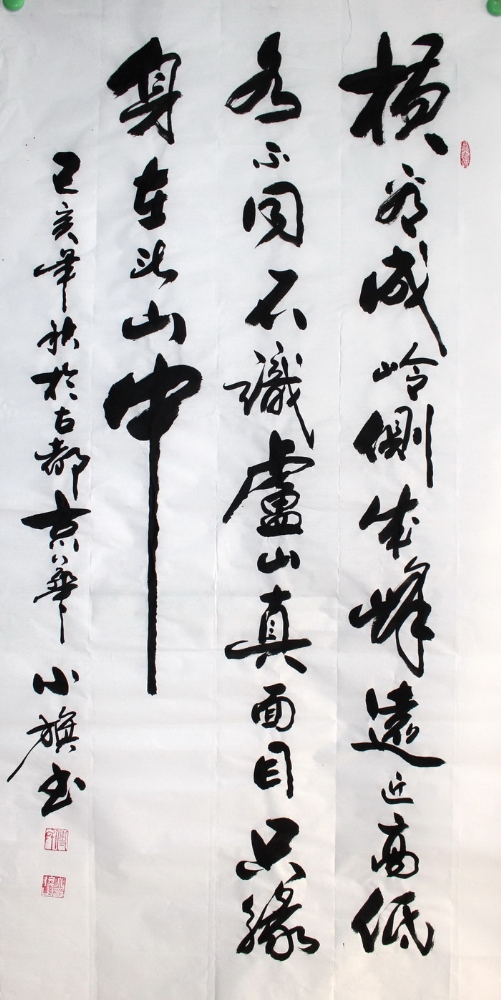 横看成岭側成峰遠近高低
各不同不識盧山真面目只緣
身在此山中
己亥年秋於古都京華小旗书